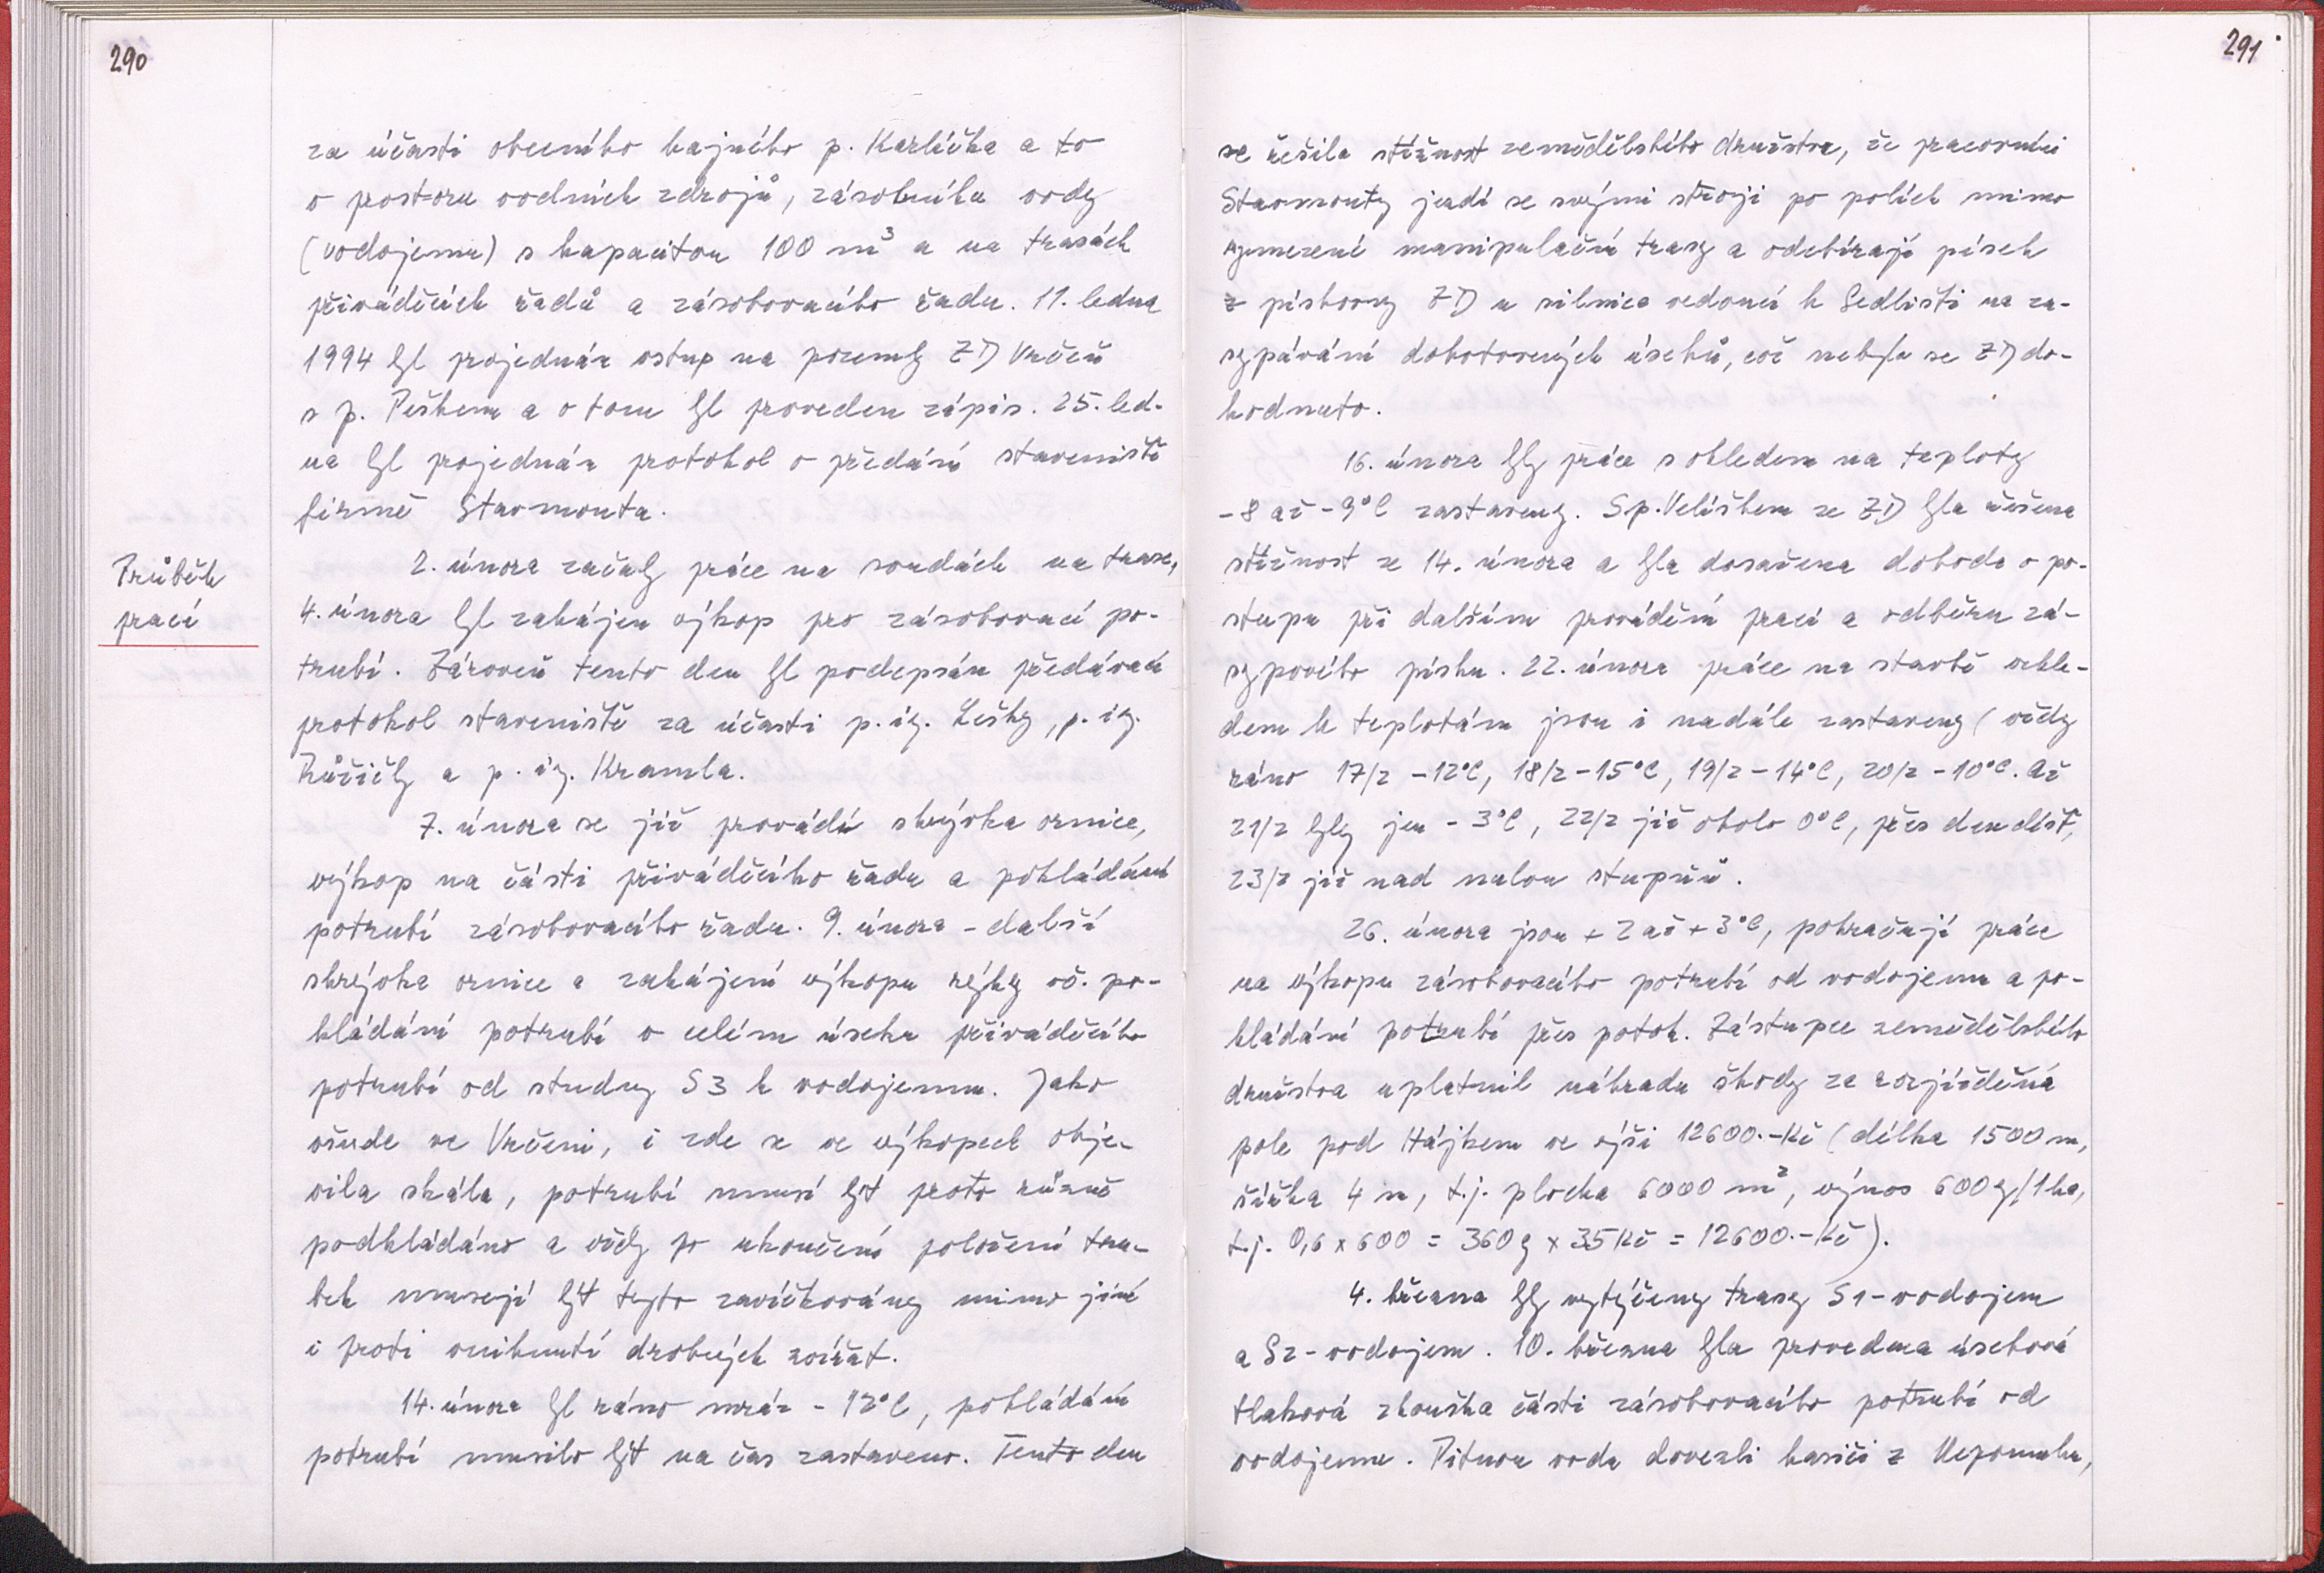 290
za účasti obecního hajného p. Karlíčka a to
v prostoru vodních zdrojů, zásobníku vody
(vodojemu) s kapacitou 100 m³ a na trasách
přiváděcích řadů a zásobovacího řadu. 11. ledna
1994 byl projednán vstup na pozemky ZD Vrčeň
s p. Peškem a o tom byl proveden zápis. 25. led-
na byl projednán protokol o předání staveniště
firmě Stavmonta.
Průběh
prací
2. února začaly práce na sondách na trase,
4. února byl zahájen výkop pro zásobovací po-
trubí. Zároveň tento den byl podepsán předávací
protokol staveniště za účasti p. ig. Lešky, p. ig.
Růžičky a p. ig. Kramla.
7. února se již provádí skrývka ornice,
výkop na části přiváděcího řadu a pokládání
potrubí zásobovacího řadu. 9. února - další
skrývka ornice a zahájení výkopu rýhy vč. po-
kládání potrubí v celém úseku přiváděcího
potrubí od studny S3 k vodojemu. Jako
všude ve Vrčeni, i zde se ve výkopech obje-
vila skála, potrubí musí být proto různě
podkládáno a vždy po ukončení položení tru-
bek musejí být tyto zavíčkovány mimo jiné
i proti vniknutí drobných zvířat.
14. února byl ráno mráz -12°C, pokládání
potrubí musilo být na čas zastaveno. Tento den
291
se řešila stížnost zemědělského družstva, že pracovníci
Stavmonty jezdí se svými stroji po polích mimo
vymezené manipulační trasy a odebírají písek
z pískovny ZD u silnice vedoucí k Sedlišti na za-
sypávání dohotovených úseků, což nebylo se ZD do-
hodnuto.
16. února byly práce s ohledem na teploty
-8 až -9°C zastaveny. S p. Velíškem ze ZD byla řešena
stížnost ze 14. února a byla dosažena dohoda o po-
stupu při dalším provádění prací a odběru zá-
sypového písku. 22. února práce na stavbě vzhle-
dem k teplotám jsou i nadále zastaveny (vždy
ráno 17/2 -12°C, 18/2 -15°C, 19/2 -14°C, 20/2 -10°C. Až
21/2 byly jen -3°C, 22/2 již okolo 0°C, přes den déšť,
23/2 již nad nulou stupňů.
26. února jsou +2 až +3°C, pokračují práce
na výkopu zásobovacího potrubí od vodojemu a po-
kládání potrubí přes potok. Zástupce zemědělského
družstva uplatnil náhradu škody za rozježděná
pole pod Hájkem ve výši 12600.-Kč (délka 1500 m,
šířka 4 m, t.j. plocha 6000 m², výnos 600 q/1 ha,
t.j. 0,6 x 600 = 360 q x 35 Kč = 12600.-Kč).
4. března byly vytýčeny trasy S1-vodojem
a S2-vodojem. 10. března byla provedena úseková
tlaková zkouška části zásobovacího potrubí od
vodojemu. Pitnou vodu dovezli hasiči z Nepomuku,